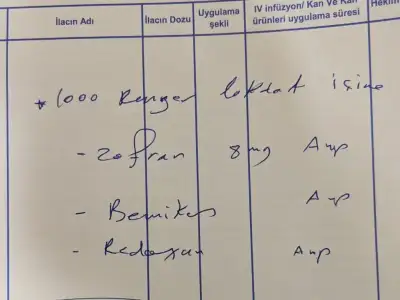 İlacın Adı İlacın Dozu Uygulama şekli IV infüzyon/ Kan Ve Kan ürünleri uygulama süresi Hekim
* 1000 Ringer laktat içine
- Zofran 8 mg Amp
- Bemiks Amp
- Redoxan Amp